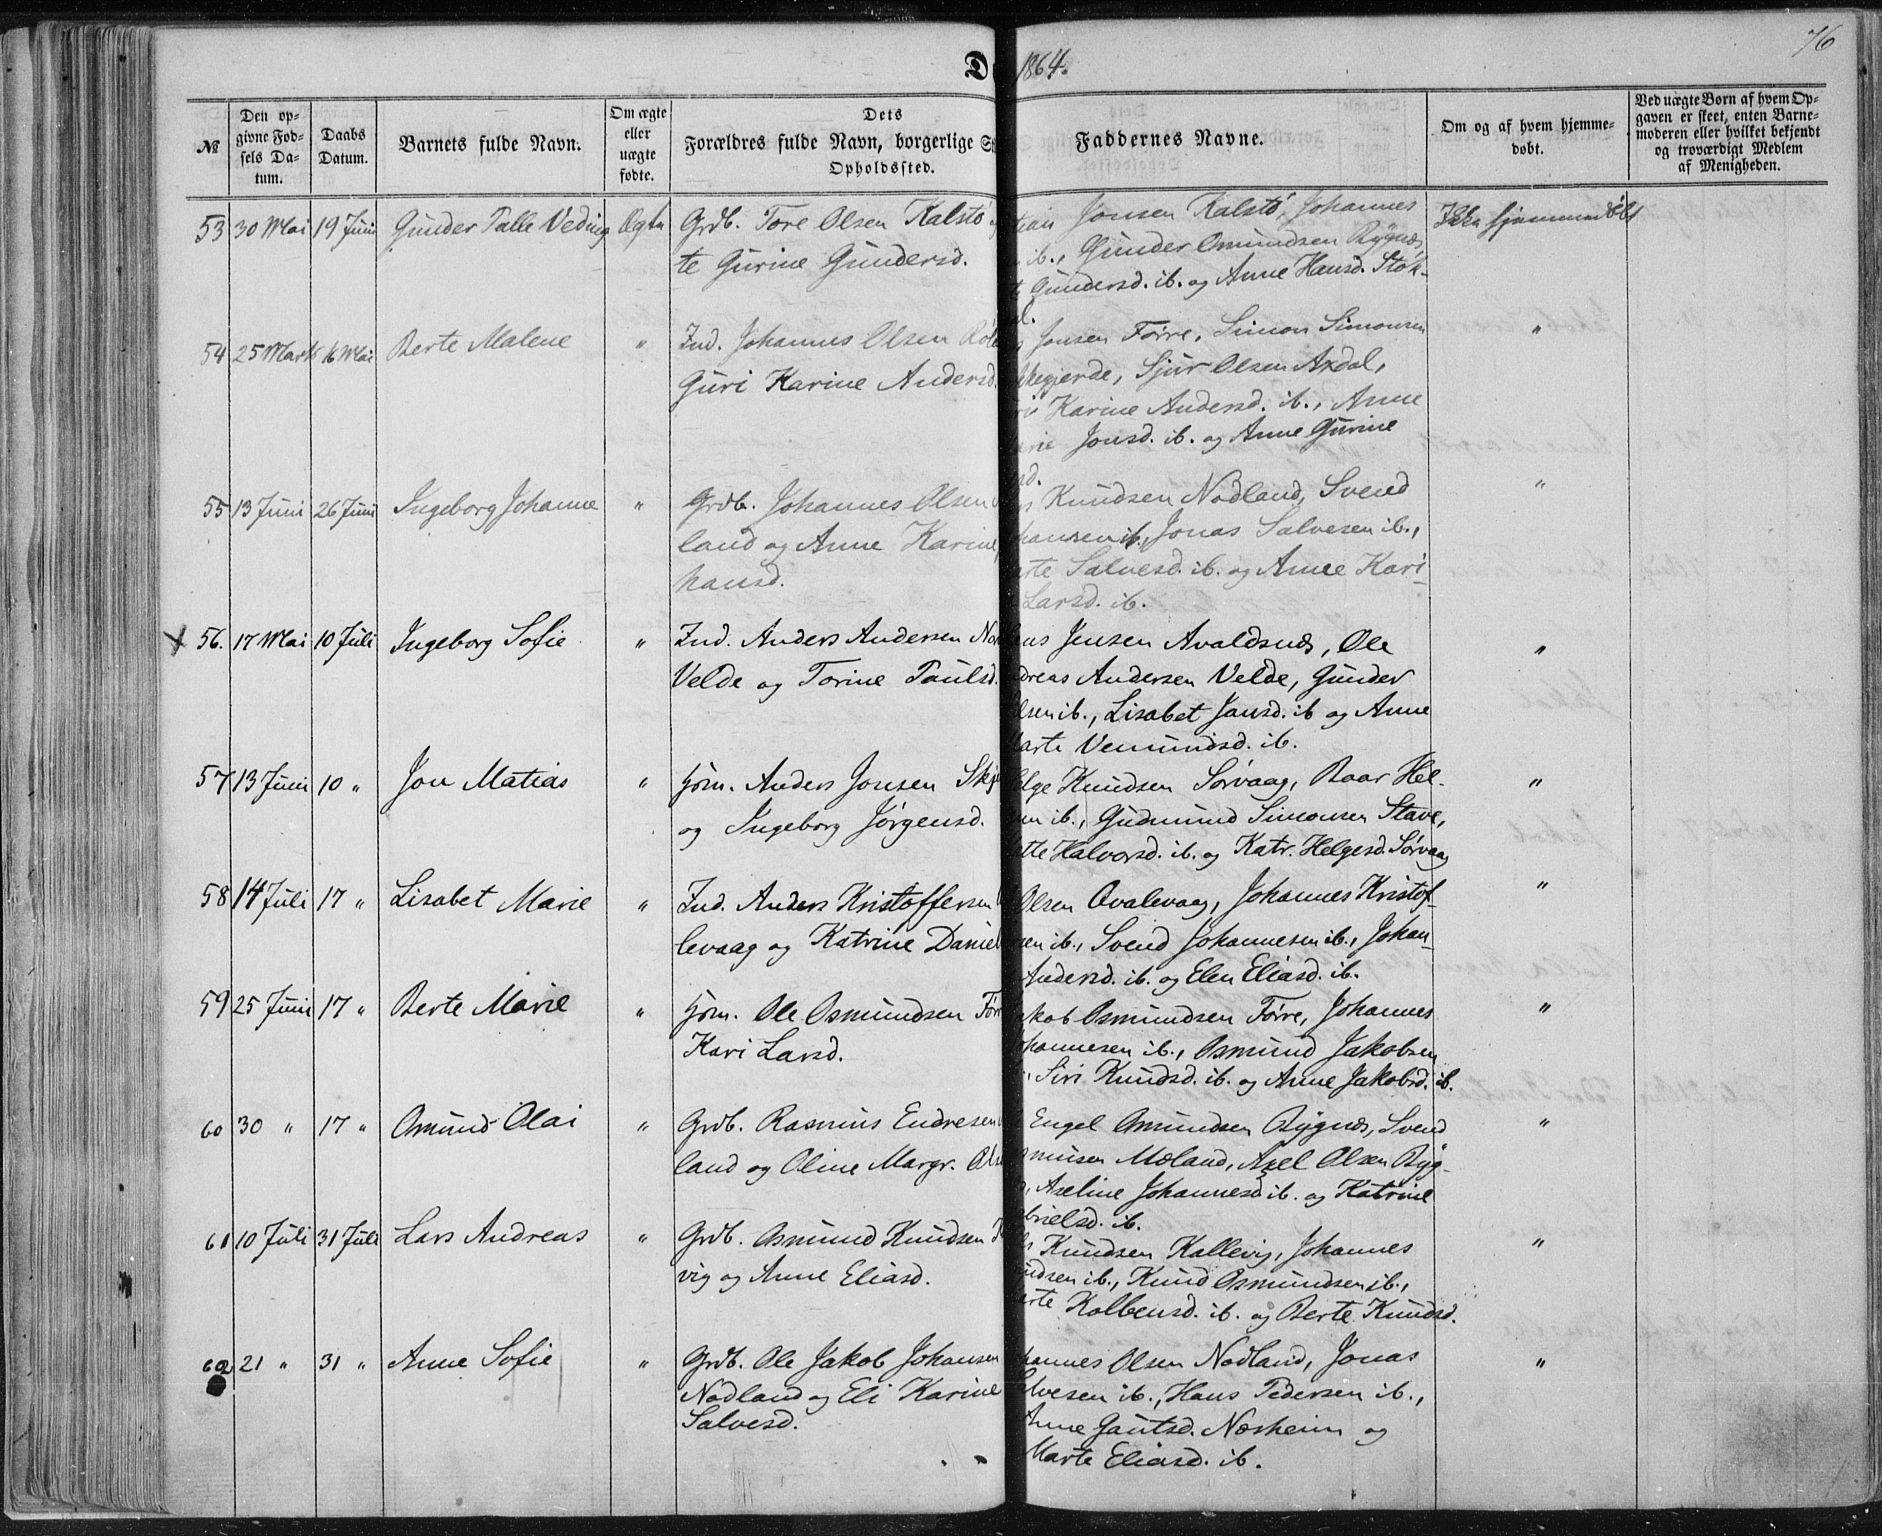 76
D
1864.
№
Den op-
givne Fød-
sels Da-
tum.
Daabs
Datum.
Barnets fulde Navn.
Om ægte
eller
uægte
fødte.
Dets
Forældres fulde Navn, borgerlige S
Opholdssted.
Faddernes Navne.
Om og af hvem hjemme-
døbt.
Ved uægte Børn af hvem Op-
gaven er skeet, enten Barne-
moderen eller hvilket bekjendt
og troværdigt Medlem
af Menigheden.
53 30 Mai 19 Juni Gunder Talle Veding Ægte Grdb. Tore Olsen Kalstø
te Gurine Gundersd.
Jonsen Kalstø, Johannes
ib., Gunder Osmundsen Bygnæs,
Gundersd. ib. og Anne Hansd. Stok-
Ikke hjemmedøbt
54 25 Marts 16 Mai Berte Malene " Ind. Johannes Olsen
Guri Karine Andersd.
Jonsen Førre, Simon Simonsen
Sjur Olsen Axdal,
Karine Andersd. ib., Anne
Jonsd. ib. og Anne Gurine
"
55 13 Juni 26 Juni Ingeborg Johanne " Grdb. Johannes Olsen
land og Anne Karine
hansd.
Knudsen Nodland, Svend
hansen ib., Jonas Salvesen ib.,
Salvesd. ib. og Anne Kari-
Larsd. ib.
"
56. 17 Mai 10 Juli Ingeborg Sofie " Ind. Anders Andersen Nor
Velde og Torine Paulsd.
Jensen Avaldsnæs, Ole
dreas Andersen Velde, Gunder
lsen ib., Lisabet Jansd. ib og Anne
arte Vemundsd. ib.
"
57 13 Juni 10 " Jon Matias " Hsm. Anders Jonsen Skj
og Ingeborg Jørgensd.
elge Knudsen Sørvaag, Baar Hel-
ib., Gudmund Simonsen Stave,
Halvorsd. ib. og Katr. Helgesd. Sørvaag
"
58 14 Juli 17 " Lisabet Marie " Ind. Anders Kristoffersen
levaag og Katrine Daniel
Olsen Ovalevaag, Johannes Kristof-
sen ib., Svend Johannesen ib., Johan-
Andersd. ib. og Elen Eliasd. ib.
"
59 25 Juni 17 " Berte Marie " Hsm. Ole Osmundsen Før
Kari Larsd.
akob Osmundsen Førre, Johannes
ohannesen ib., Osmund Jakobsen
Siri Knudsd. ib. og Anne Jakobsd. ib.
"
60 30 " 17 " Osmund Olai " Grdb. Rasmus Endresen
land og Oline Margr. Ols
Engel Osmundsen Bygnæs, Svend
smusen Mæland, Axel Olsen Byg-
Axeline Johannesd ib. og Katrine
brielsd. ib.
"
61 10 Juli 31 Juli Lars Andreas " Grdb. Osmund Knudsen
vig og Anne Eliasd.
Knudsen Kallevig, Johannes
udsen ib., Knud Osmundsen ib.,
arte Kolbensd. ib. og Berte Knudsd.
"
62 21 " 31 " Anne Sofie " Grdb. Ole Jakob Johansen
Nodland og Eli Karine
Salvesd.
hannes Olsen Nodland, Jonas
alvesen ib., Hans Pedersen ib.,
Anne Gautsd. Næsheim og
Marte Eliasd. ib.
"